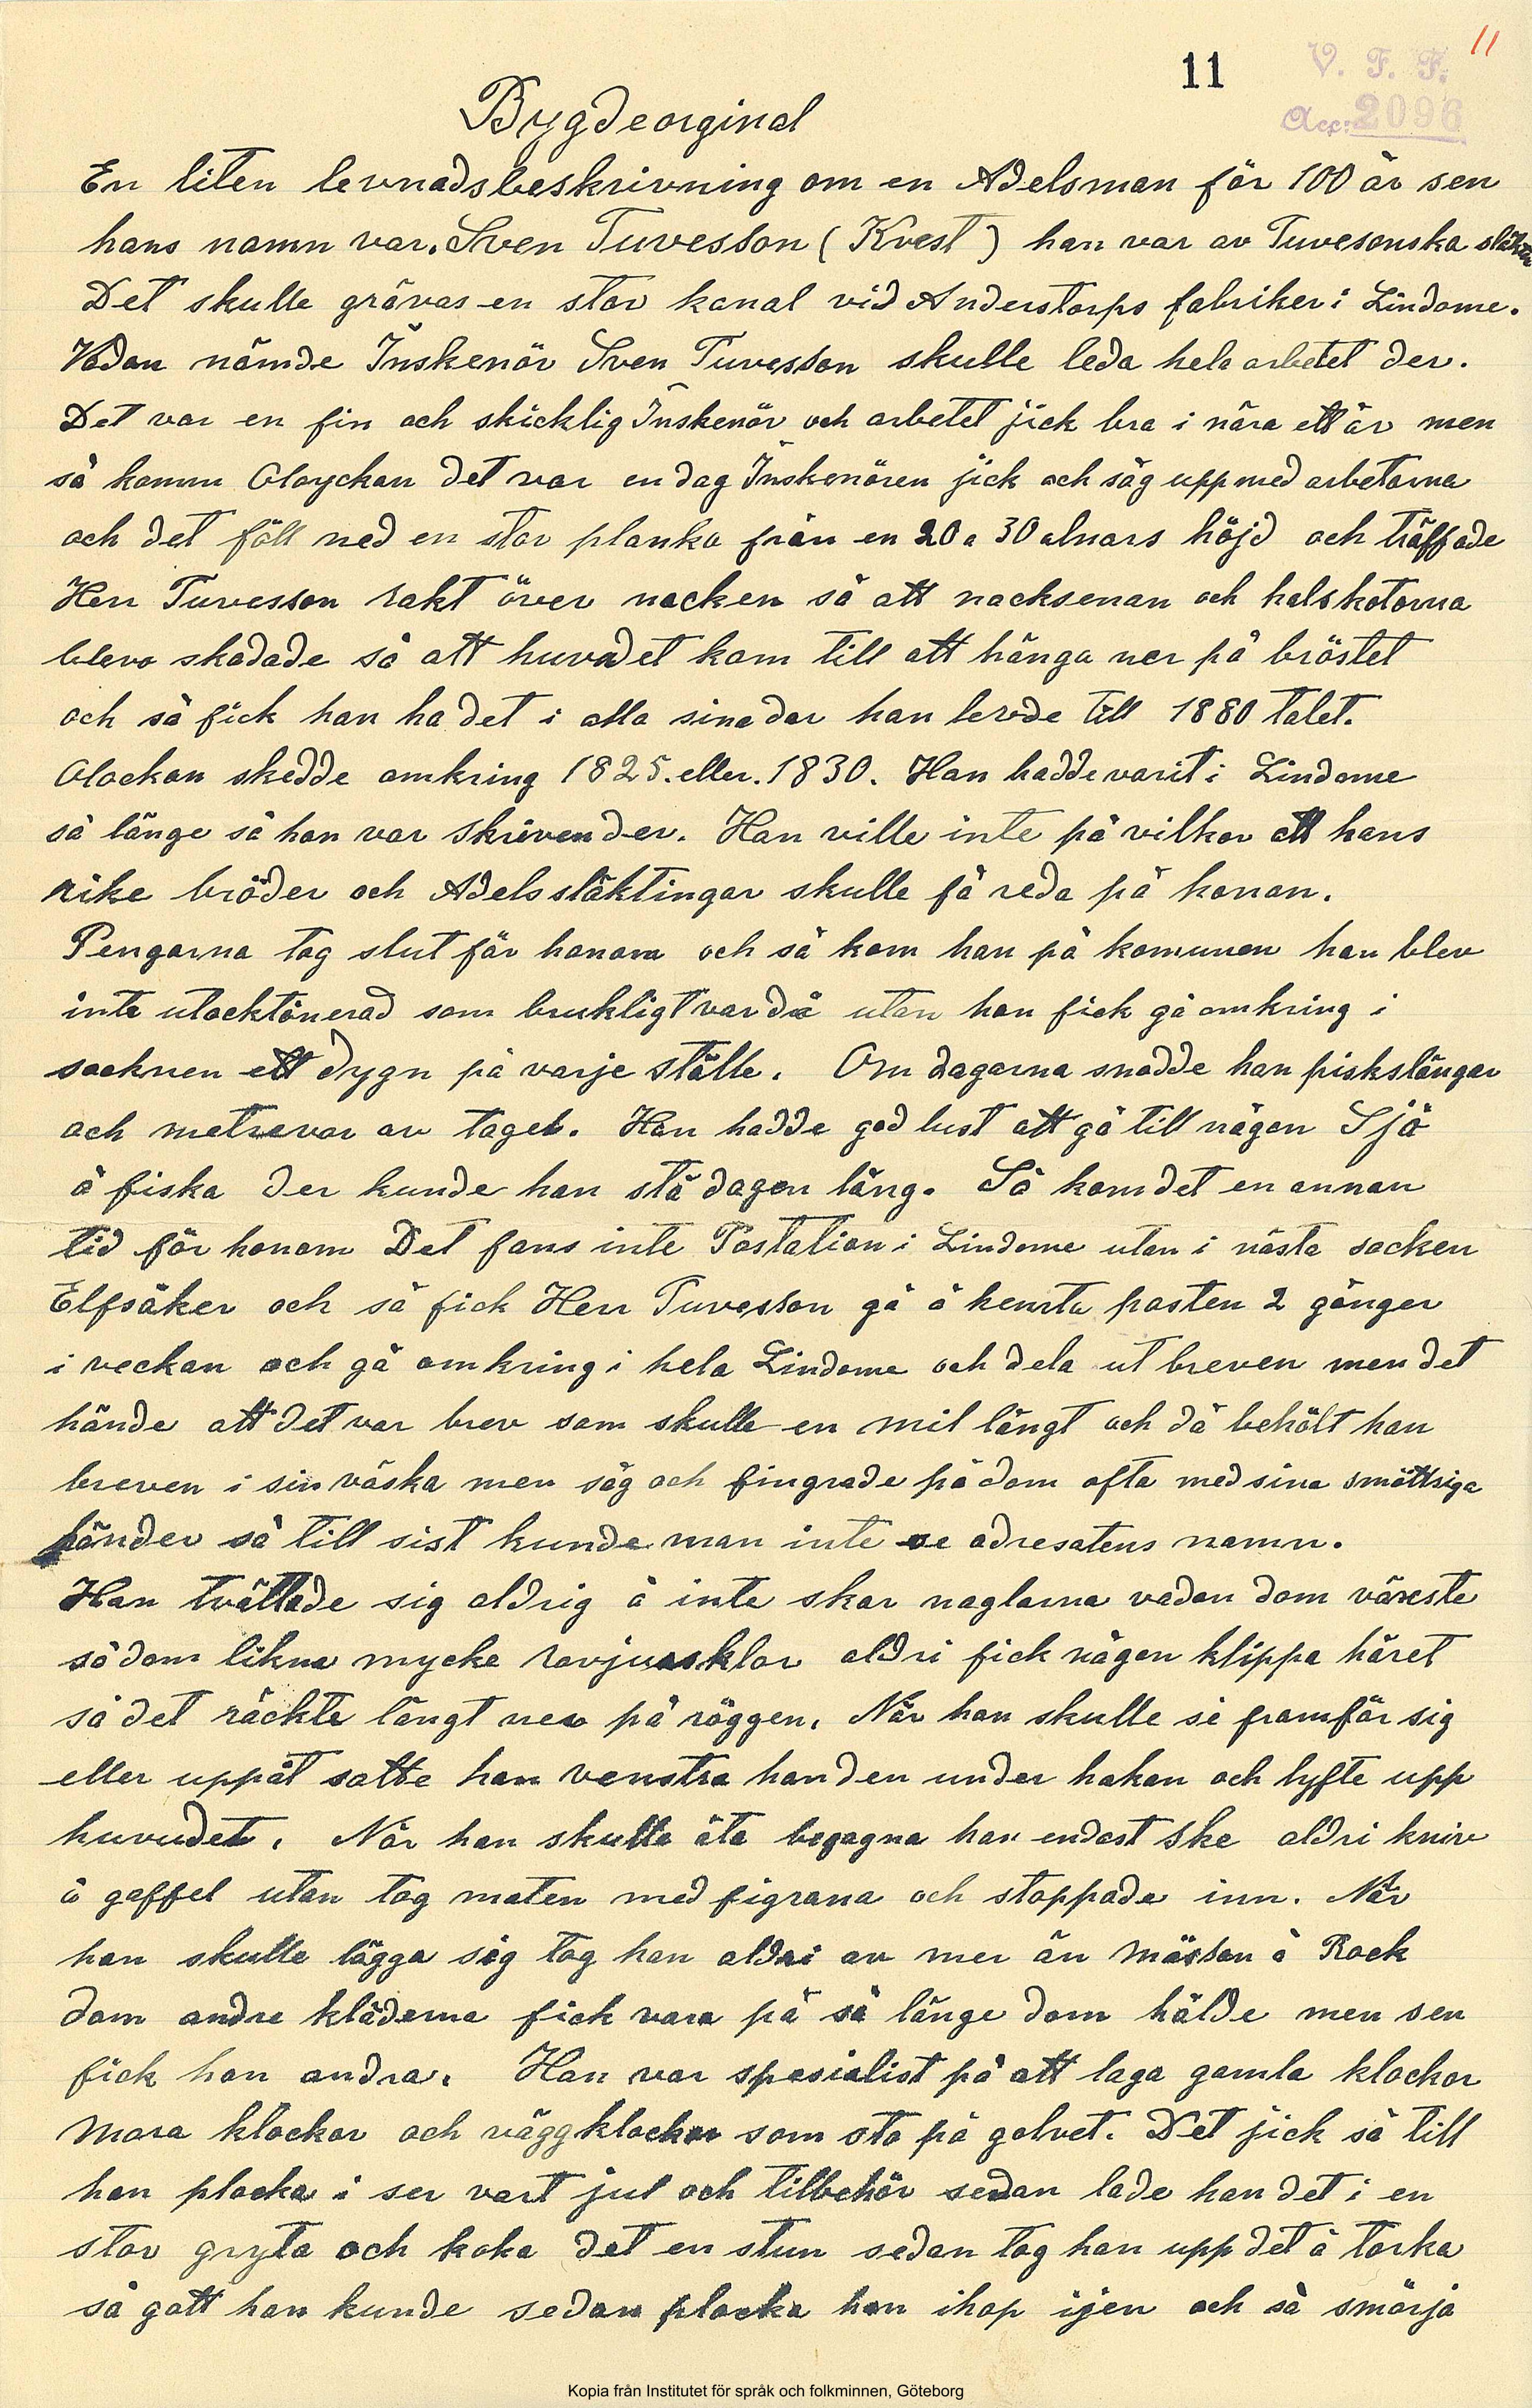 11
11
V. F. F.
Acc: 2096
Bygdeorginal
En liten levnadsbeskrivning om en Adelsman för 100 år sen
hans namn var. Sven Tuvesson (Kvest) han var av Tuvesonska släkten
Det skulle grävas en stor kanal vid Anderstorps fabriker i Lindome.
Vadan nämde Inskenör Sven Tuvesson skulle leda hela arbetet der.
Det var en fin och skicklig Inskenör och arbetet jick bra i nära ett år men
så komm Oloyckan det var en dag Inskenören jick och såg upp med arbetarna
och det föll ned en stor planka från en 20 a 30 alnars höjd och träffade
Herr Tuvesson rakt över nacken så att nacksenan och halskotorna
blevo skadade så att huvudet kom till att hänga ner på bröstet
och så fick han ha det i alla sina dar han levde till 1880 talet.
Olockan skedde omkring 1825. eller. 1830. Han hadde varit i Lindome
så länge så han var skriven der. Han ville inte på vilkor att hans
rike bröder och Adelssläktingar skulle få reda på honon.
Pengarna tog slut för honom och så kom han på komunen han blev
inte utacktönerad som brukligt var då utan han fick gå omkring i
socknen ett dygn på varje ställe. Om dagarna snodde han piskslängar
och metrevar av tagel. Han hadde god lust att gå till någon Sjö
å fiska der kunde han stå dagen lång. Så kom det en annan
tid för honom Det fans inte Postation i Lindome utan i nästa socken
Elfsåker och så fick Herr Tuvesson gå å hemta posten 2 gånger
i veckan och gå omkring i hela Lindome och dela ut breven men det
hände att det var brev som skulle en mil långt och då behölt han
breven i sin väska men såg och fingrade på dom ofta med sina smöttsiga
händer så till sist kunde man inte se adresatens namn.
Han tvättade sig aldrig å inte skar naglarna vadan dom växeste
så dom likna mycke rovjursklor aldri fick någon klippa håret
så det räckte långt ner på röggen. När han skulle se framför sig
eller uppåt satte han venstra handen under hakan och lyfte upp
huvudet. När han skulle äta begagna han endast ske aldri kniv
å gaffel utan tog maten med figrana och stoppade inn. När
han skulle lägga sig tog han aldri av mer än Mössan å Rock
dom andre kläderna fick vara på så länge dom hälde men sen
fick han andra. Han var spesialist på att laga gamla klockor
Mora klockor och väggklockor som sto på golvet. Det jick så till
han plocka i ser vart jul och tilbehör sedan lade han det i en
stor gryta och koka det en stun sedan tog han upp det å torka
så gott han kunde sedan plocka han ihop igen och så smörja
Kopia från Institutet för språk och folkminnen, Göteborg